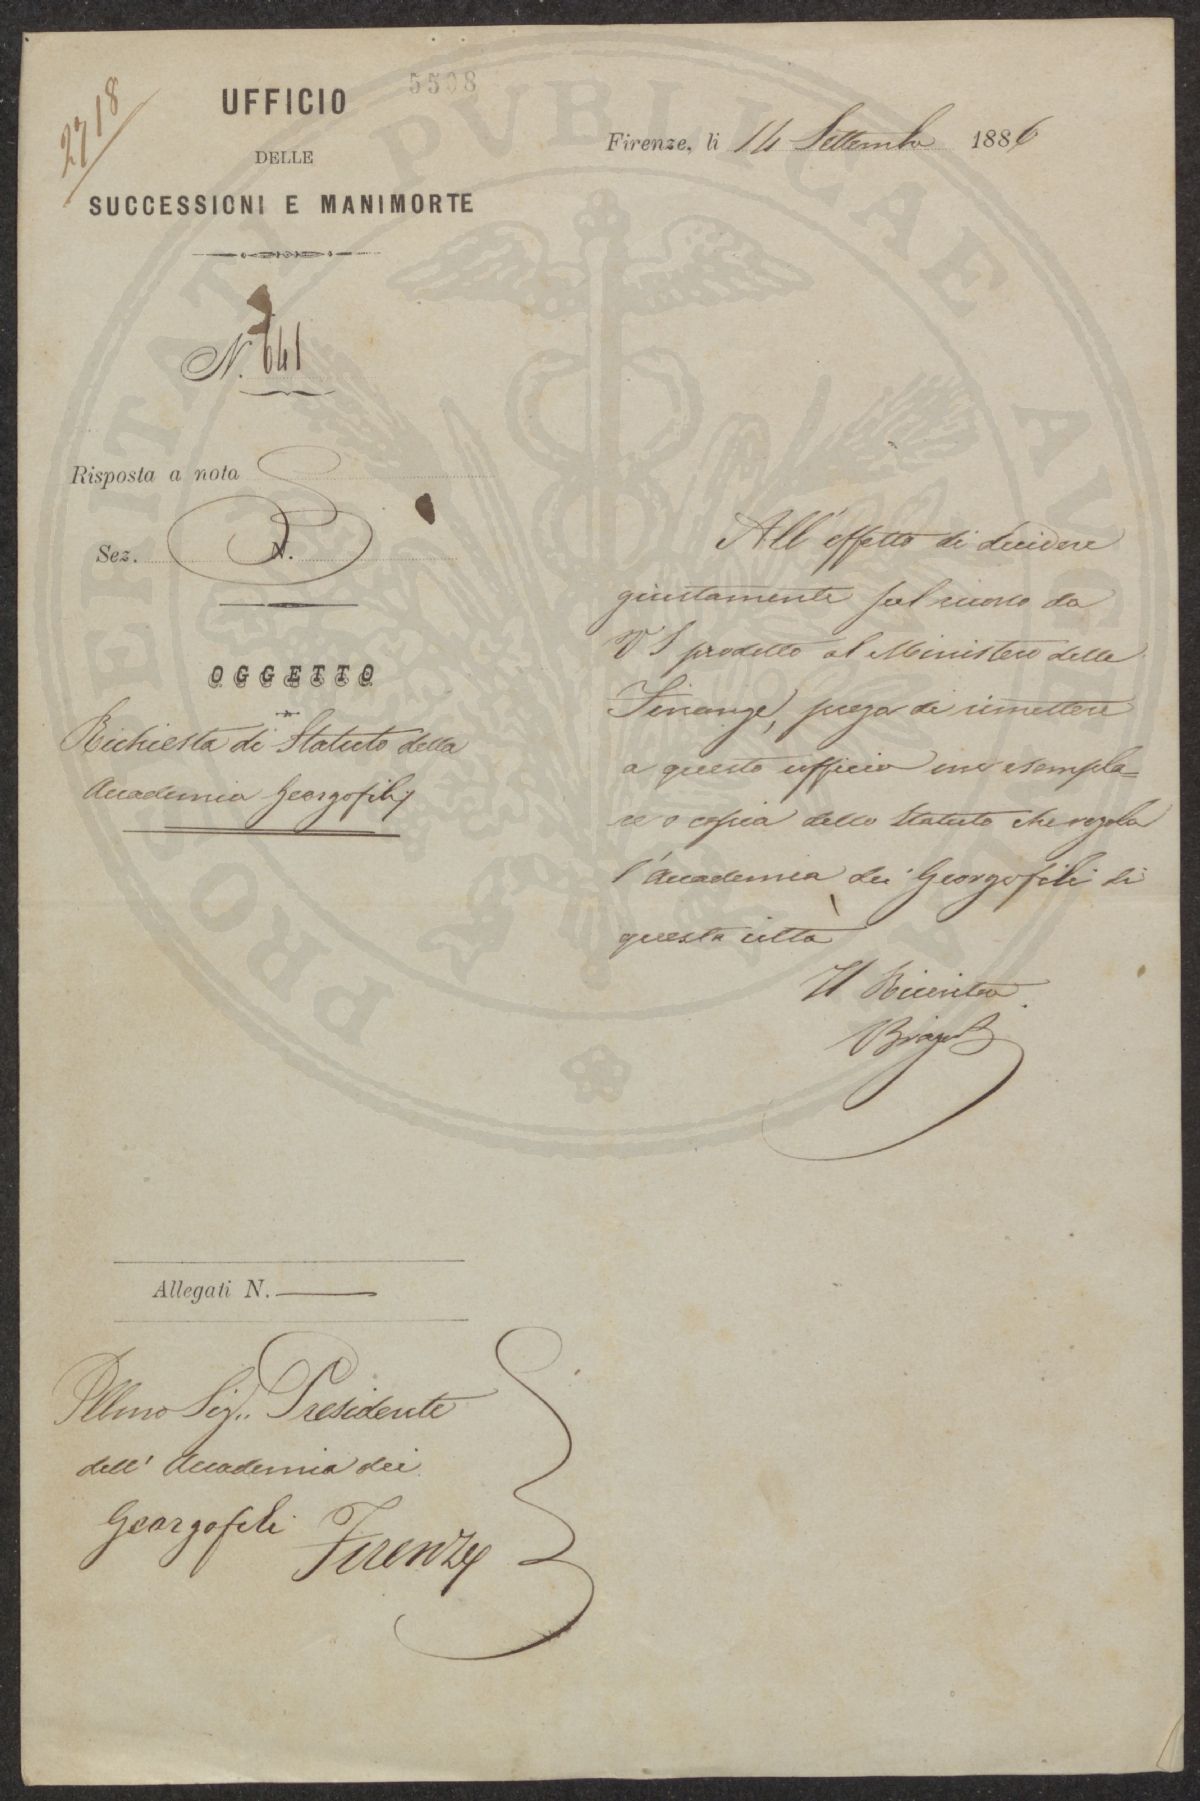 2718
5508
UFFICIO
DELLE
SUCCESSIONI E MANIMORTE
Firenze, li 14 Settembre 1886
N. 641
Risposta a nota
Sez. N.
OGGETTO
Richiesta di Statuto della
Accademia Georgofili
All'effetto di decidere
giustamente sul ricorso da
V S prodotto al Ministero delle
Finanze, prega di rimettere
a questo ufficio un esempla=
re o copia dello Statuto che regola
l'Accademia dei Georgofili di
questa città
Il Ricevitore
Allegati N.
Illmo Sig. Presidente
dell' Accademia dei
Georgofili Firenze
PROSPERITATI PVBLICAE AVGENDAE